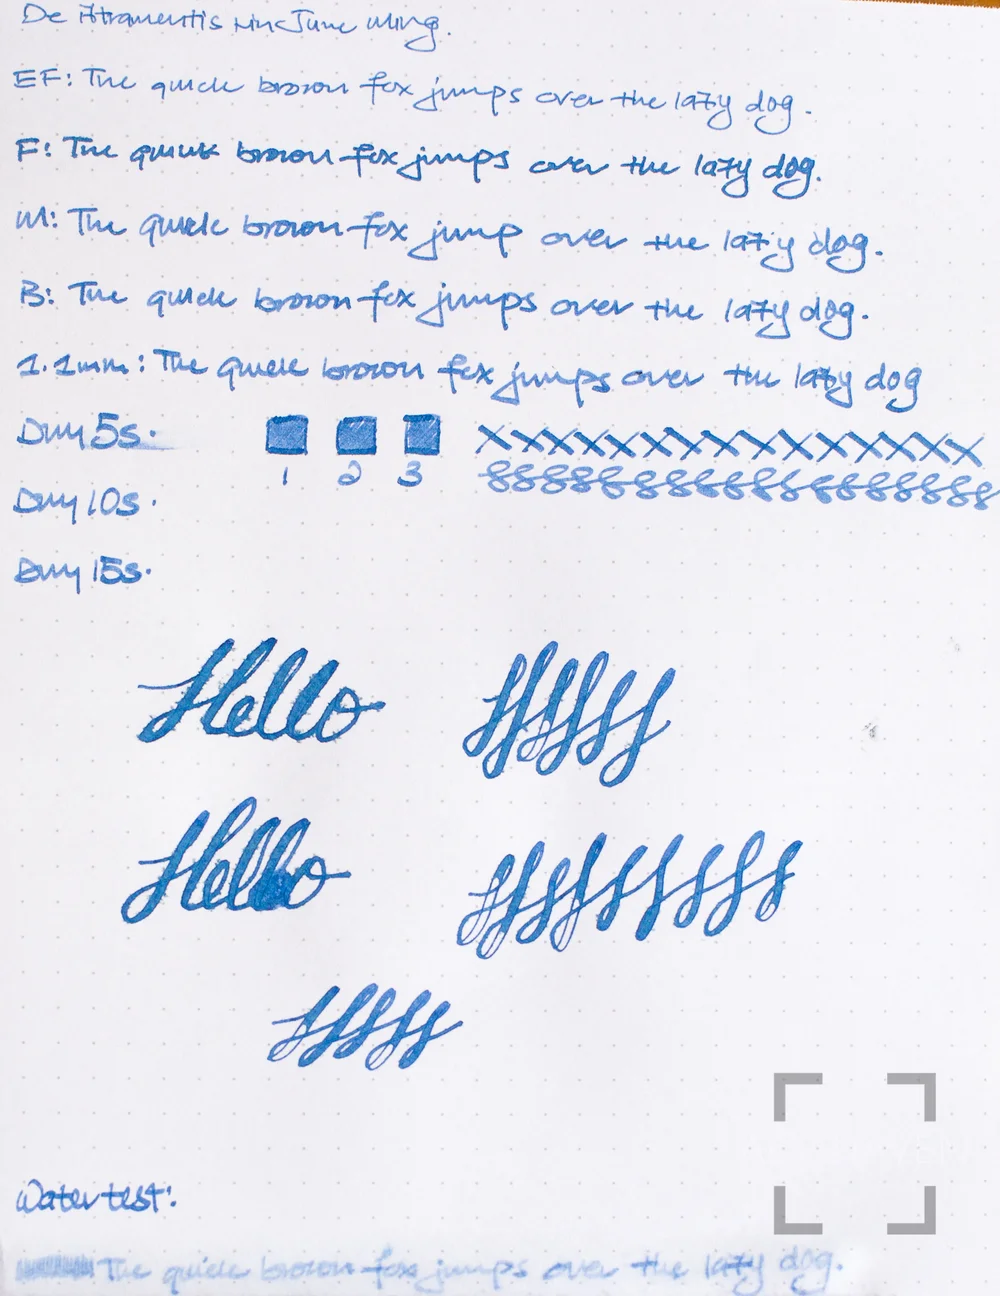 De Atramentis June Ming.
EF: The quick brown fox jumps over the lazy dog.
F: The quick brown fox jumps over the lazy dog.
M: The quick brown fox jump over the lazy dog.
B: The quick brown fox jumps over the lazy dog.
1.1mm: The quick brown fox jumps over the lazy dog
Dry 5s.
1 2 3
Dry 10s.
Dry 15s.
Hello
Hello
Water test:
The quick brown fox jumps over the lazy dog.